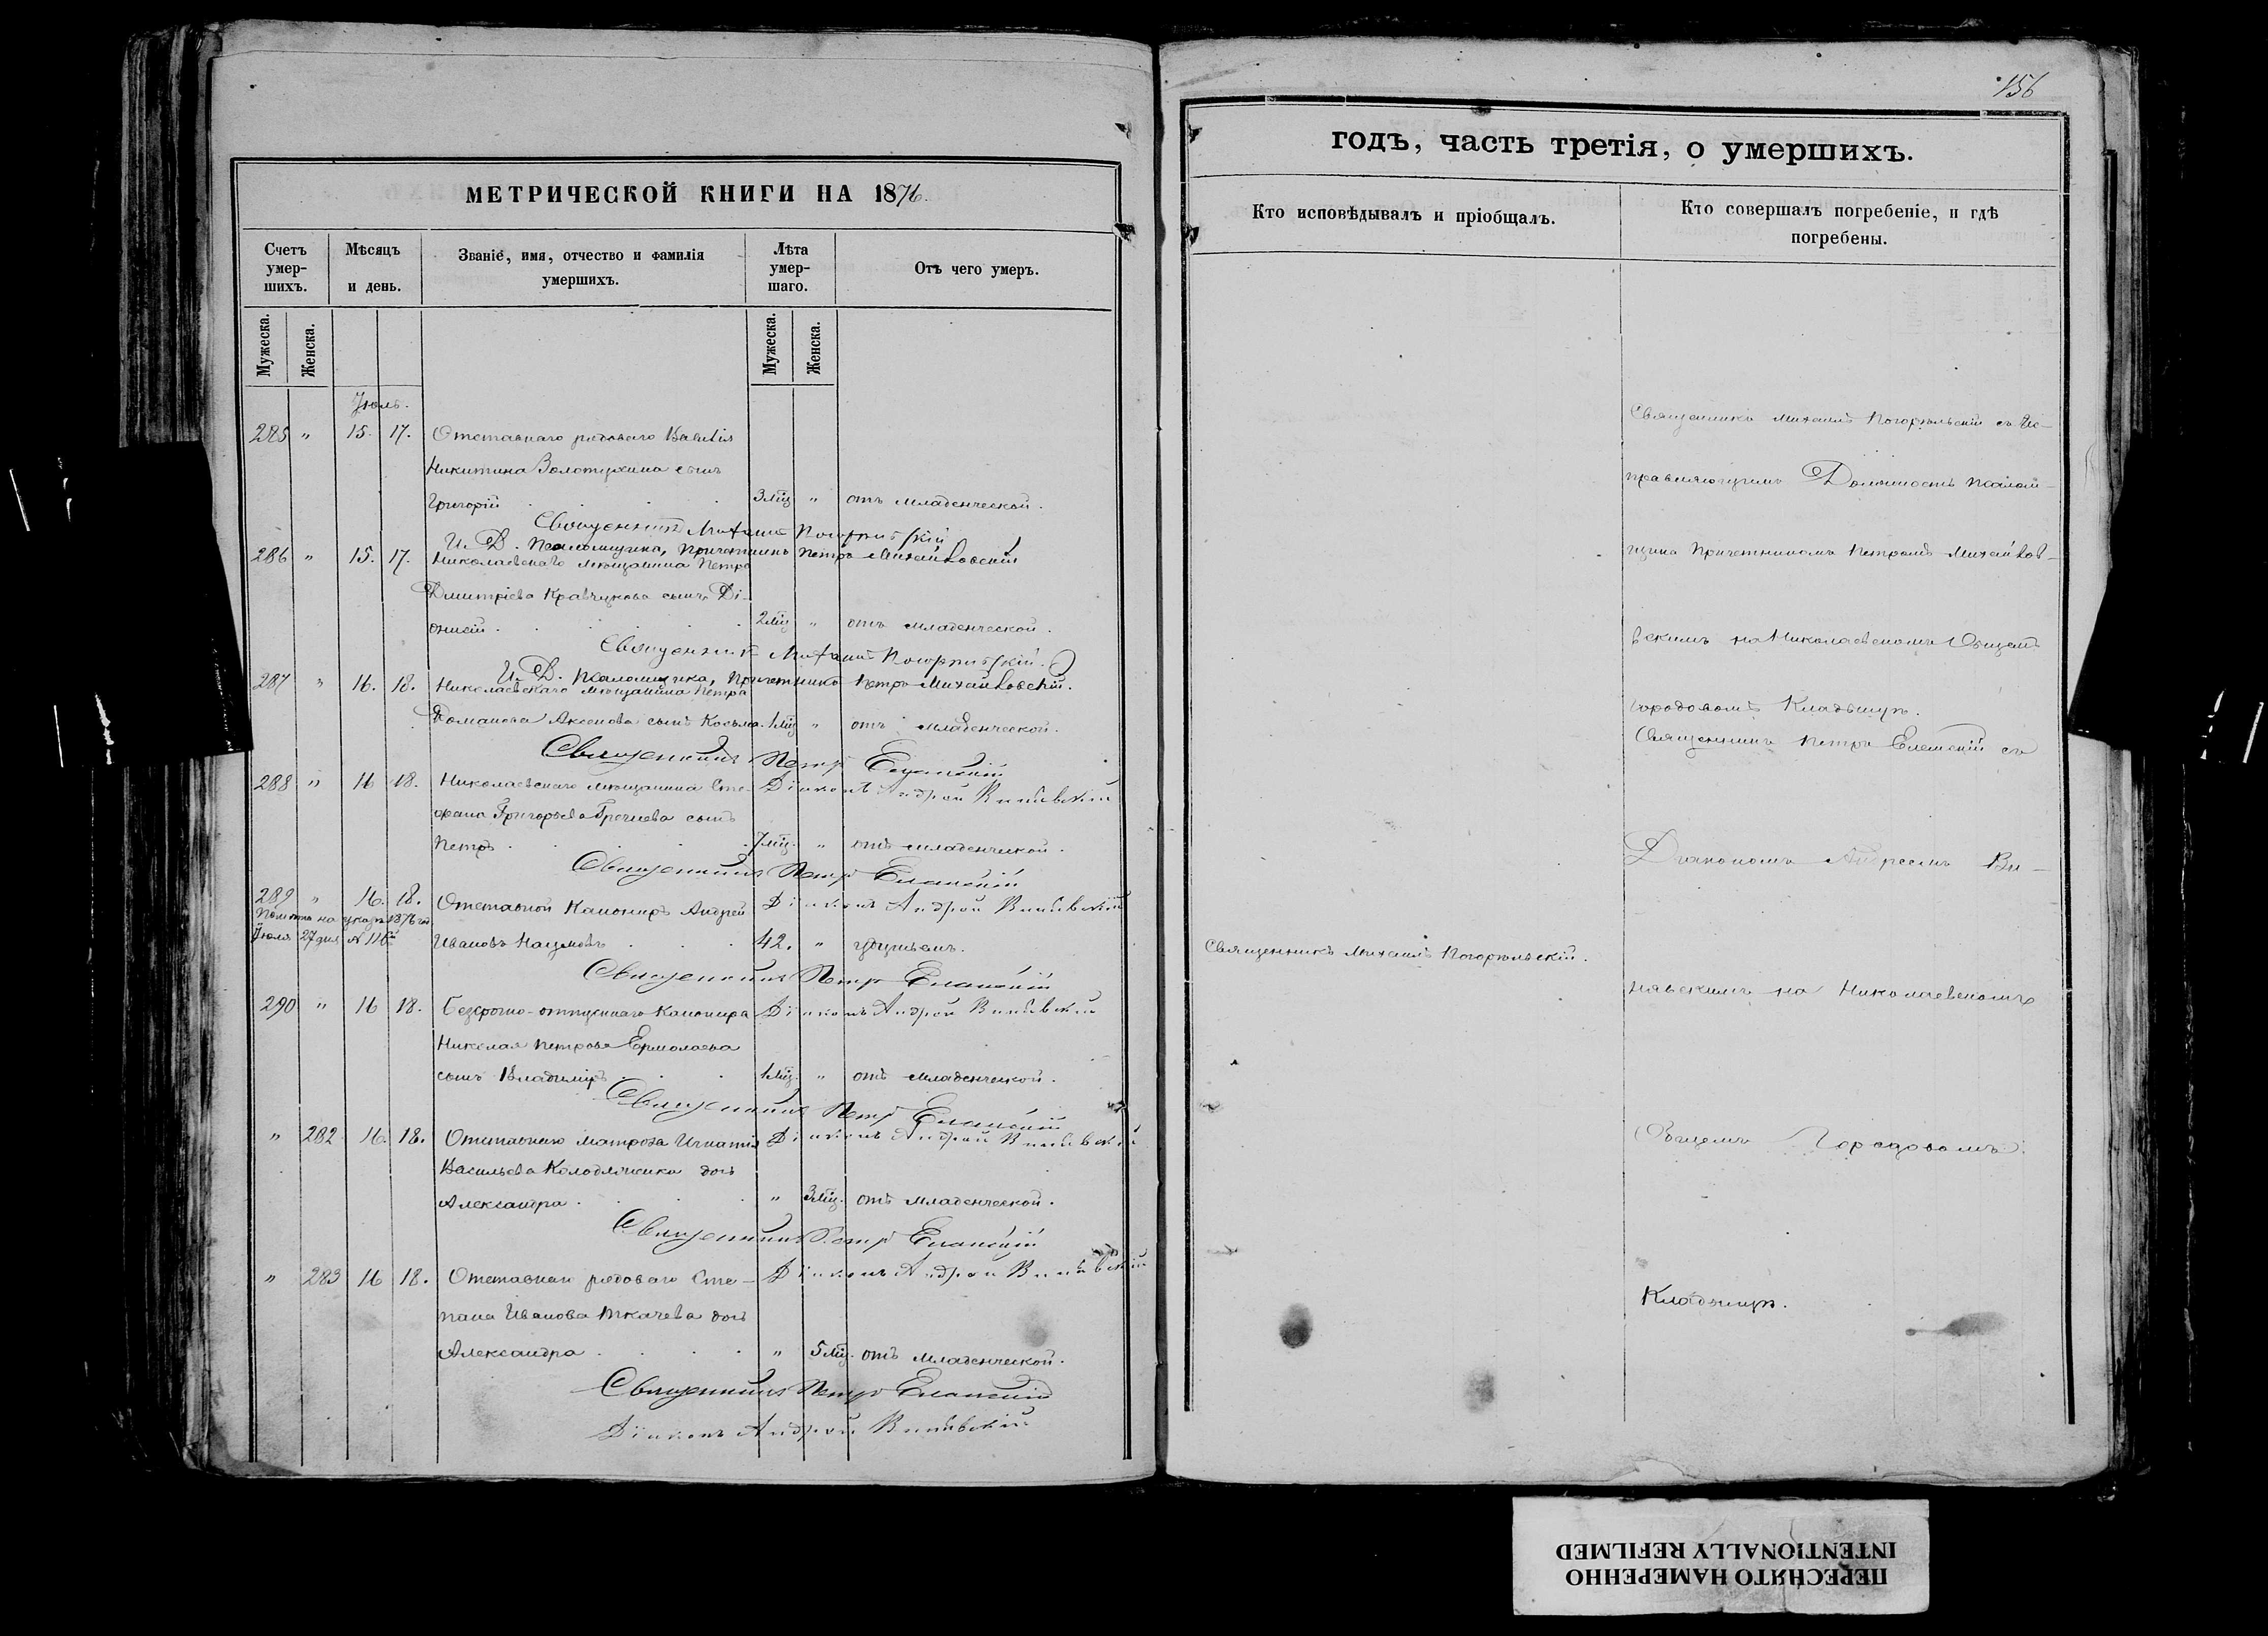 МЕТРИЧЕСКОЙ КНИГИ НА 1876.
Счетъ умер-шихъ. Мѣсяцъ и день. Званіе, имя, отчество и фамилія умершихъ. Лѣта умер-шаго. Отъ чего умеръ.
Мужеска. Женска. Мужеска. Женска.
Іюль.
285 " 15. 17. Отставнаго рядоваго
Никитина Золотухина сынъ
Григорій . . . . 3 мѣц " отъ младенческой.
Священникъ Михаилъ Погорѣльскій
И. Д. Псаломщика, Причетникъ Петръ Михайловскій
286 " 15. 17. Николаевскаго мѣщанина Петра
Дмитріева Кравчукова сынъ Ді-
онисій . . . . 2 мѣц " отъ младенческой.
Священникъ Михаилъ Погорѣльскій.
И. Д. Псаломщика, Причетникъ Петръ Михайловскій.
287 " 16. 18. Николаевскаго мѣщанина Петра
Романова Аксенова сынъ Косьма. 1 мѣц " отъ младенческой.
Священникъ Петръ Еланскій
288 " 16 18. Николаевскаго мѣщанина Сте- Діаконъ Андрей
фана Григорьева сынъ
Петръ . . . . 7 мѣц. " отъ младенческой.
Священникъ Петръ Еланскій
289 " 16. 18. Отставной Канониръ Андрей Діаконъ Андрей
на указъ 1876 г.
Іюля 27 дня № 116
Ивановъ Наумовъ . . . 42. "
Священникъ Петръ Еланскій
290 " 16 18. Безсрочно-отпускнаго Канонира Діаконъ Андрей
Николая Петрова Ермолаева
сынъ Владиміръ . . . 1 мѣц. " отъ младенческой.
Священникъ Петръ Еланскій
" 282 16. 18. Отставнаго матроса Игнатія Діаконъ Андрей
Васильева дочь
Александра . . . . " 3 мѣц. отъ младенческой.
Священникъ Петръ Еланскій
" 283 16 18. Отставнаго рядоваго Сте- Діаконъ Андрей
пана Иванова Ткачева дочь
Александра . . . . " 5 мѣц. отъ младенческой.
Священникъ Петръ Еланскій
Діаконъ Андрей
156
годъ, часть третія, о умершихъ.
Кто исповѣдывалъ и пріобщалъ. Кто совершалъ погребеніе, и гдѣ погребены.
Священникъ Михаилъ Погорѣльскій съ Ис-
правляющимъ Должность Псалом-
щика Причетникомъ Петромъ Михайлов-
скимъ на Николаевскомъ Общемъ
городовомъ Кладбищѣ.
Священникъ Петръ Еланскій съ
Діакономъ Андреемъ Ви-
Священникъ Михаилъ Погорѣльскій.
на Николаевскомъ
Общемъ Городовомъ
Кладбищѣ.
ПЕРЕСНЯТО НАМЕРЕННО
INTENTIONALLY REFILMED